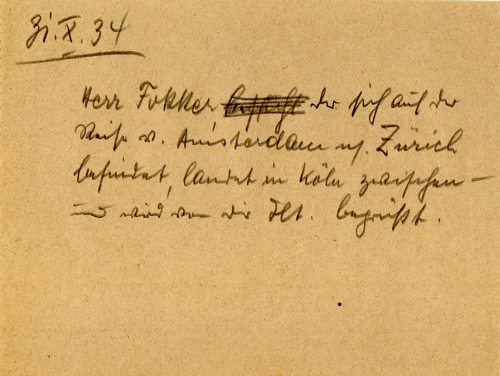 31.X.34
Herr Fokker der sich auf der
Reise v. Amsterdam n. Zürich
befindet, landet in Köln zwischen –
und wird von Dir. begrüßt.